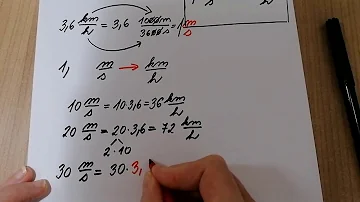 3,6 km/h = 3,6 1000m/3600s = 1 m/s
1, m/s → km/h
10 m/s = 10·3,6 = 36 km/h
20 m/s = 20·3,6 = 72 km/h
2·10
30 m/s = 30·3,